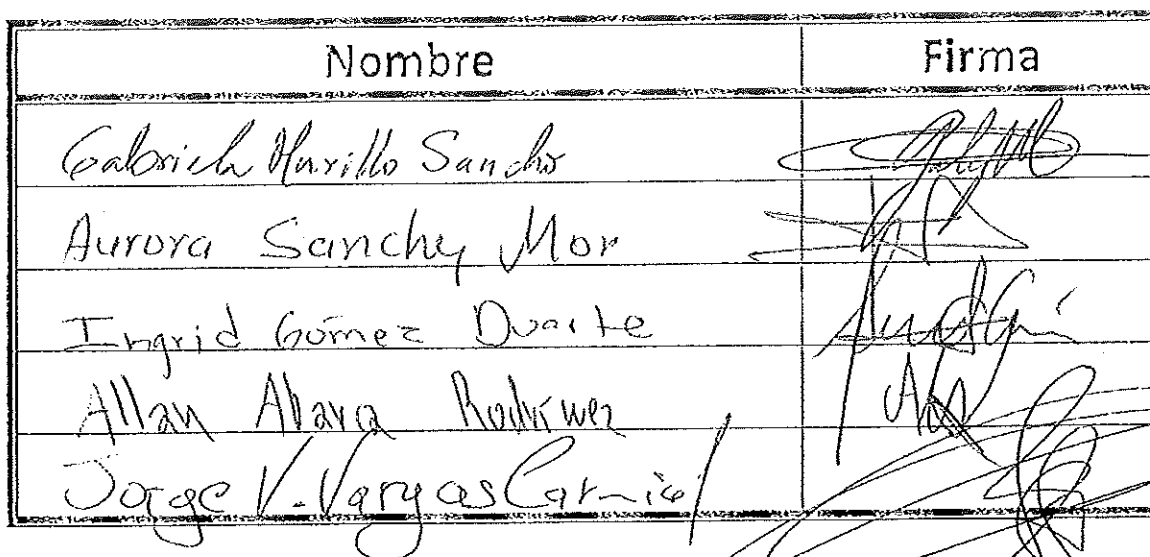 Nombre Firma
Gabriela Murillo Sancho
Aurora Sanchez Mor
Ingrid Gómez Duarte
Allan Abarca Rodríguez
Jorge V. Vargas Carmiol